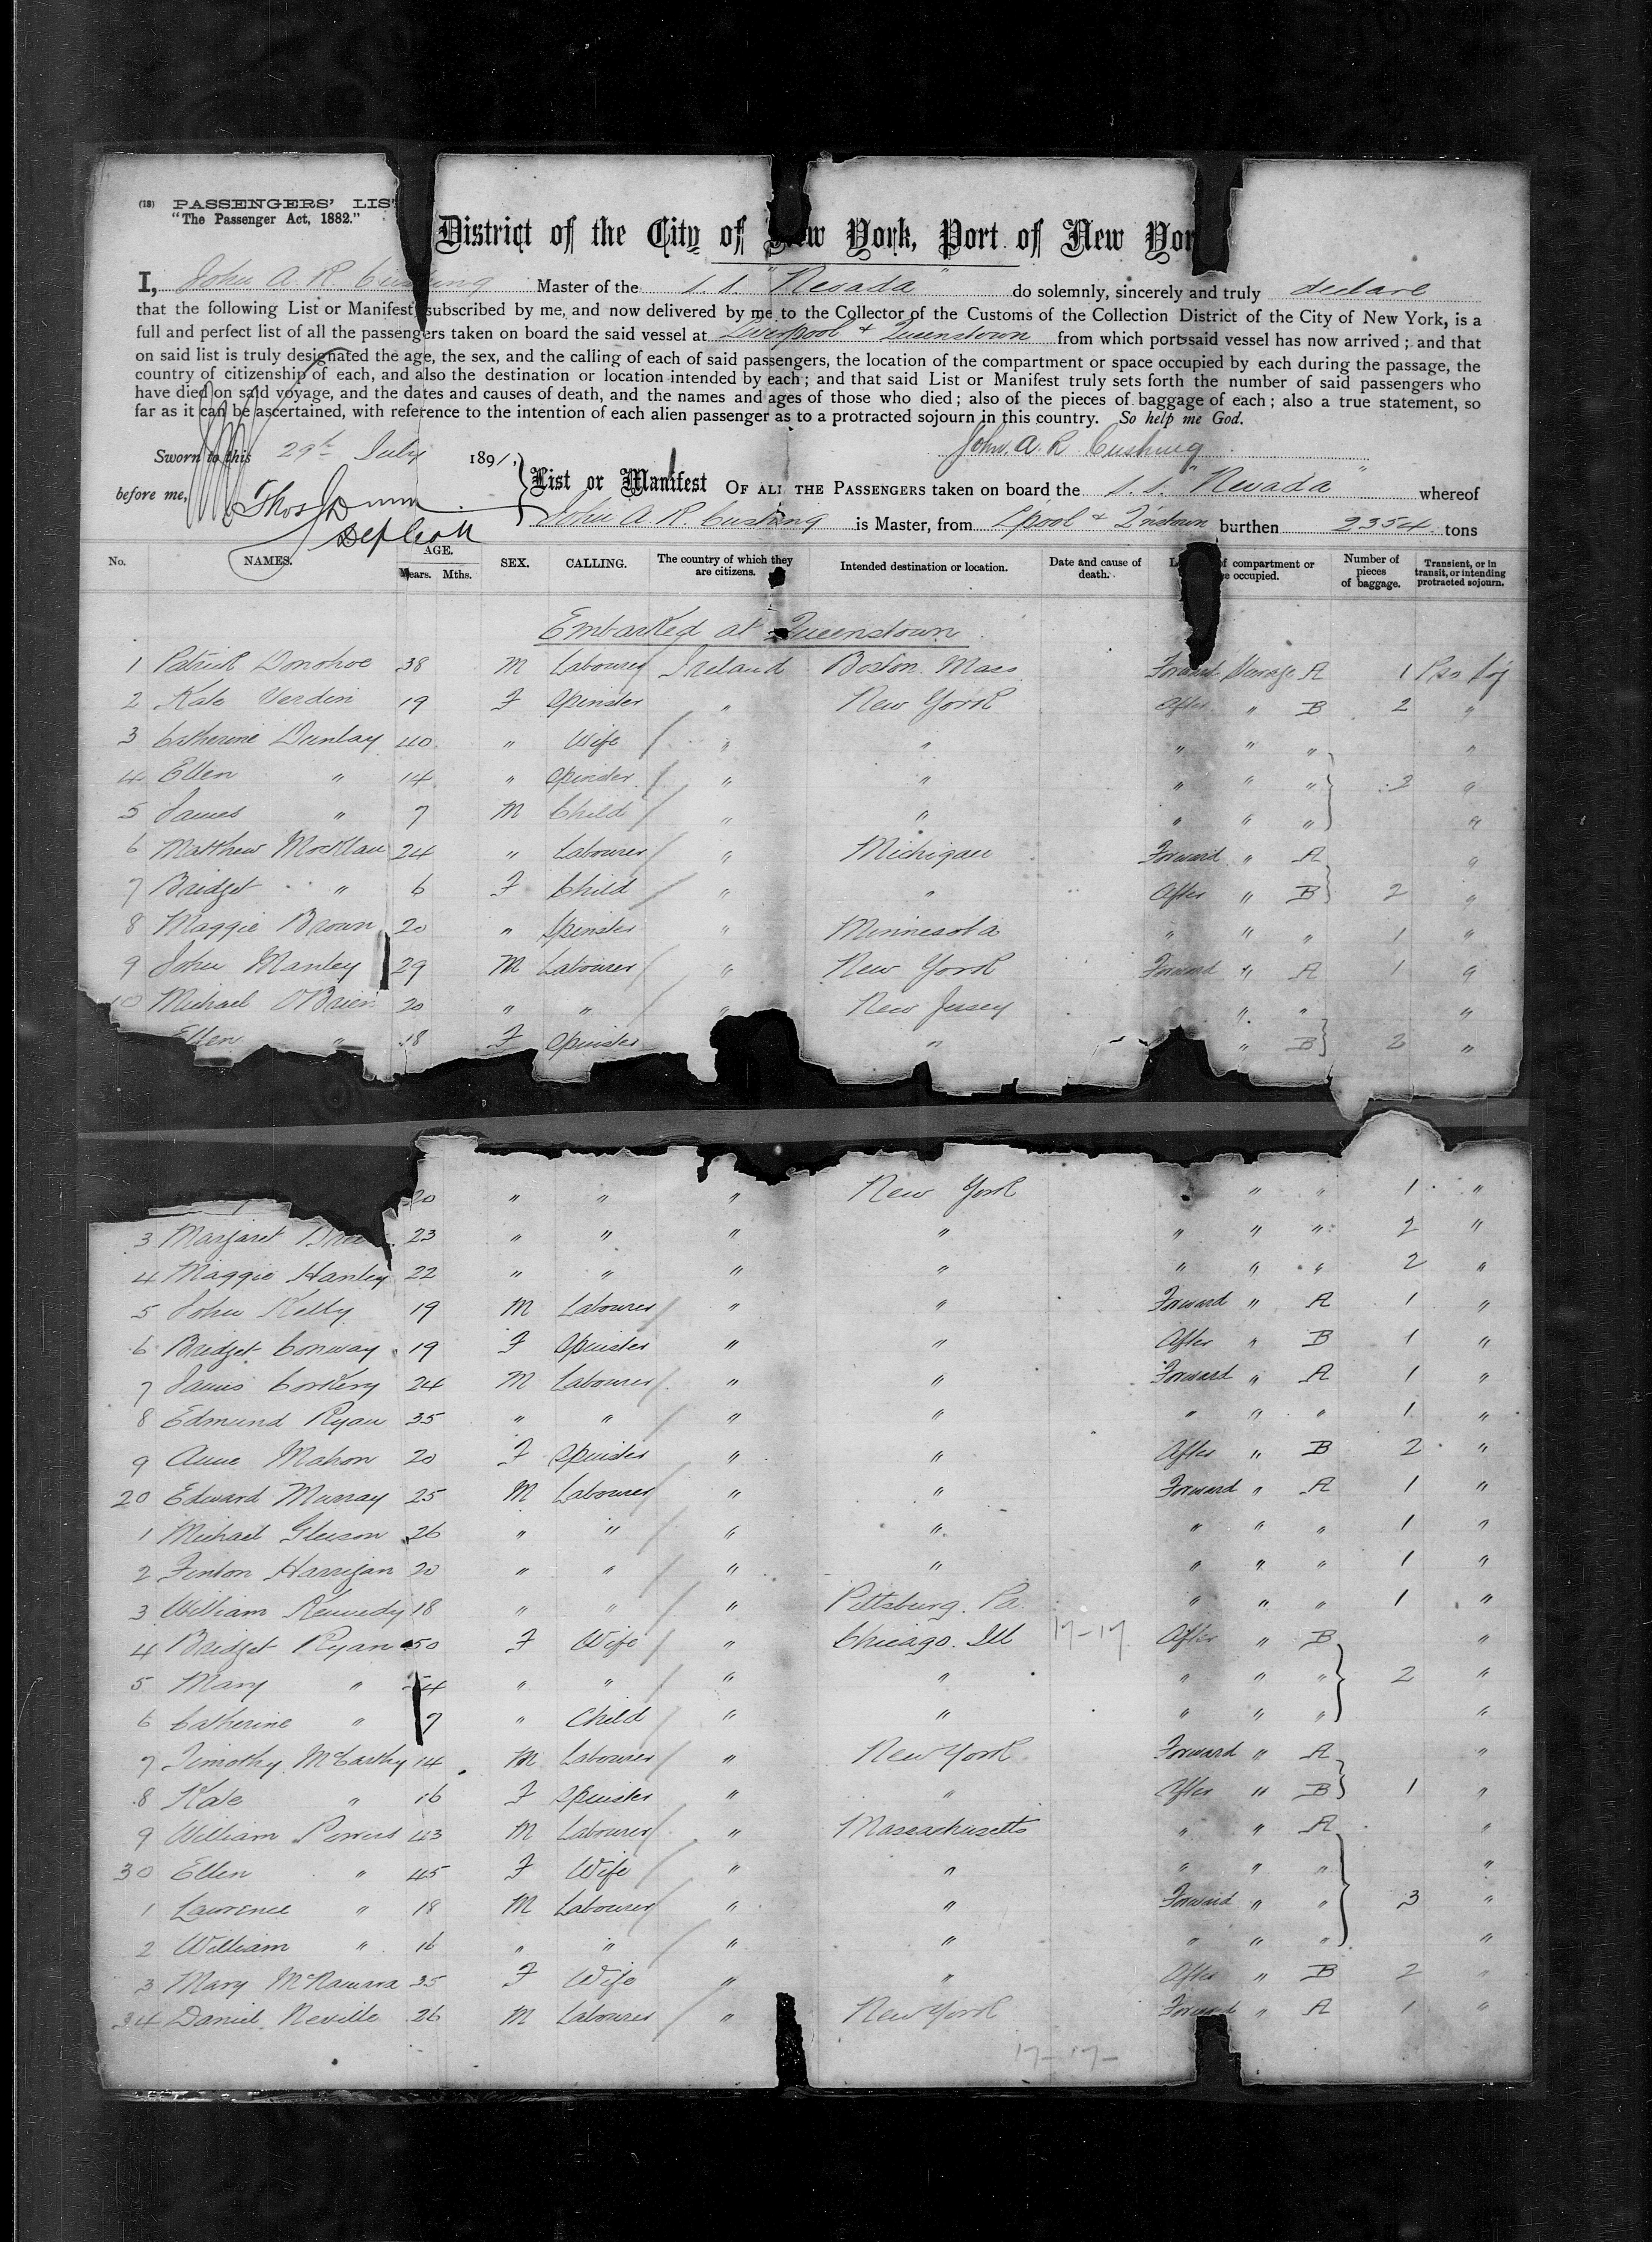 (18) PASSENGERS' LIS
"The Passenger Act, 1882."
District of the City of New York, Port of New Yor
I, John A. R. Cushing Master of the s.s. "Nevada" do solemnly, sincerely and truly declare
that the following List or Manifest subscribed by me, and now delivered by me to the Collector of the Customs of the Collection District of the City of New York, is a
full and perfect list of all the passengers taken on board the said vessel at Liverpool & Queenstown from which port said vessel has now arrived; and that
on said list is truly designated the age, the sex, and the calling of each of said passengers, the location of the compartment or space occupied by each during the passage, the
country of citizenship of each, and also the destination or location intended by each; and that said List or Manifest truly sets forth the number of said passengers who
have died on said voyage, and the dates and causes of death, and the names and ages of those who died; also of the pieces of baggage of each; also a true statement, so
far as it can be ascertained, with reference to the intention of each alien passenger as to a protracted sojourn in this country. So help me God.
Sworn to this 29th July 1891, John. A. R Cushing
before me, Thos Dunn
List or Manifest OF ALL THE PASSENGERS taken on board the s.s. "Nevada" whereof
John A. R. Cushing is Master, from Lpool & Q'nstown burthen 2354 tons
No. NAMES. AGE. Years. Mths. SEX. CALLING. The country of which they are citizens. Intended destination or location. Date and cause of death. of compartment or occupied. Number of pieces of baggage. Transient, or in transit, or intending protracted sojourn.
Embarked at Queenstown
1 Patrick Donohoe 38 M Labourer Ireland Boston Mass Forward Steerage A 1
2 Kate Verdin 19 F Spinster " New York After " B 2 "
3 Catherine Dunlay 40 " Wife " " " " " "
4 Ellen " 14 " Spinster " " " " " 3 "
5 James " 7 M Child " " " " " "
6 Matthew Mocklau 24 " Labourer " Michigan Forward " A "
7 Bridget " 6 F Child " " After " B 2 "
8 Maggie Brown 20 " Spinster " Minnesota " " " 1 "
9 John Manley 29 M Labourer " New York Forward " A 1 "
10 Michael O'Brien 20 " " " New Jersey " " "
Ellen " 18 F Spinster " " B 2 "
20 " " " New York " " 1 "
3 Margaret 23 " " " " " " " 2 "
4 Maggie Hanley 22 " " " " " " " 2 "
5 John Kelly 19 M Labourer " " Forward " A 1 "
6 Bridget Conway 19 F Spinster " " After " B 1 "
7 James Corkery 24 M Labourer " " Forward " A 1 "
8 Edmund Ryan 35 " " " " " " " 1 "
9 Anne Mahon 20 F Spinster " " After " B 2 "
20 Edward Murray 25 M Labourer " " Forward " A 1 "
1 Michael Gleeson 26 " " " " " " " 1 "
2 Finton Harrigan 20 " " " " " " " 1 "
3 William Kennedy 18 " " " Pittsburg. Pa. " " " 1 "
4 Bridget Ryan 50 F Wife " Chicago. Ill 17-17 After " B "
5 Mary " " " " " " " " 2 "
6 Catherine " 7 " Child " " " " " "
7 Timothy McCarthy 14 M Labourer " New York Forward " A "
8 Kate " 16 F Spinster " " After " B 1 "
9 William Powers 43 M Labourer " Massachusetts " " A "
30 Ellen " 45 F Wife " " " " " "
1 Lawrence " 18 M Labourer " " Forward " " 3 "
2 William " 16 " " " " " " " "
3 Mary McNamara 35 F Wife " " After " B 2 "
34 Daniel Neville 26 M Labourer " New York Forward " A 1 "
17-17-